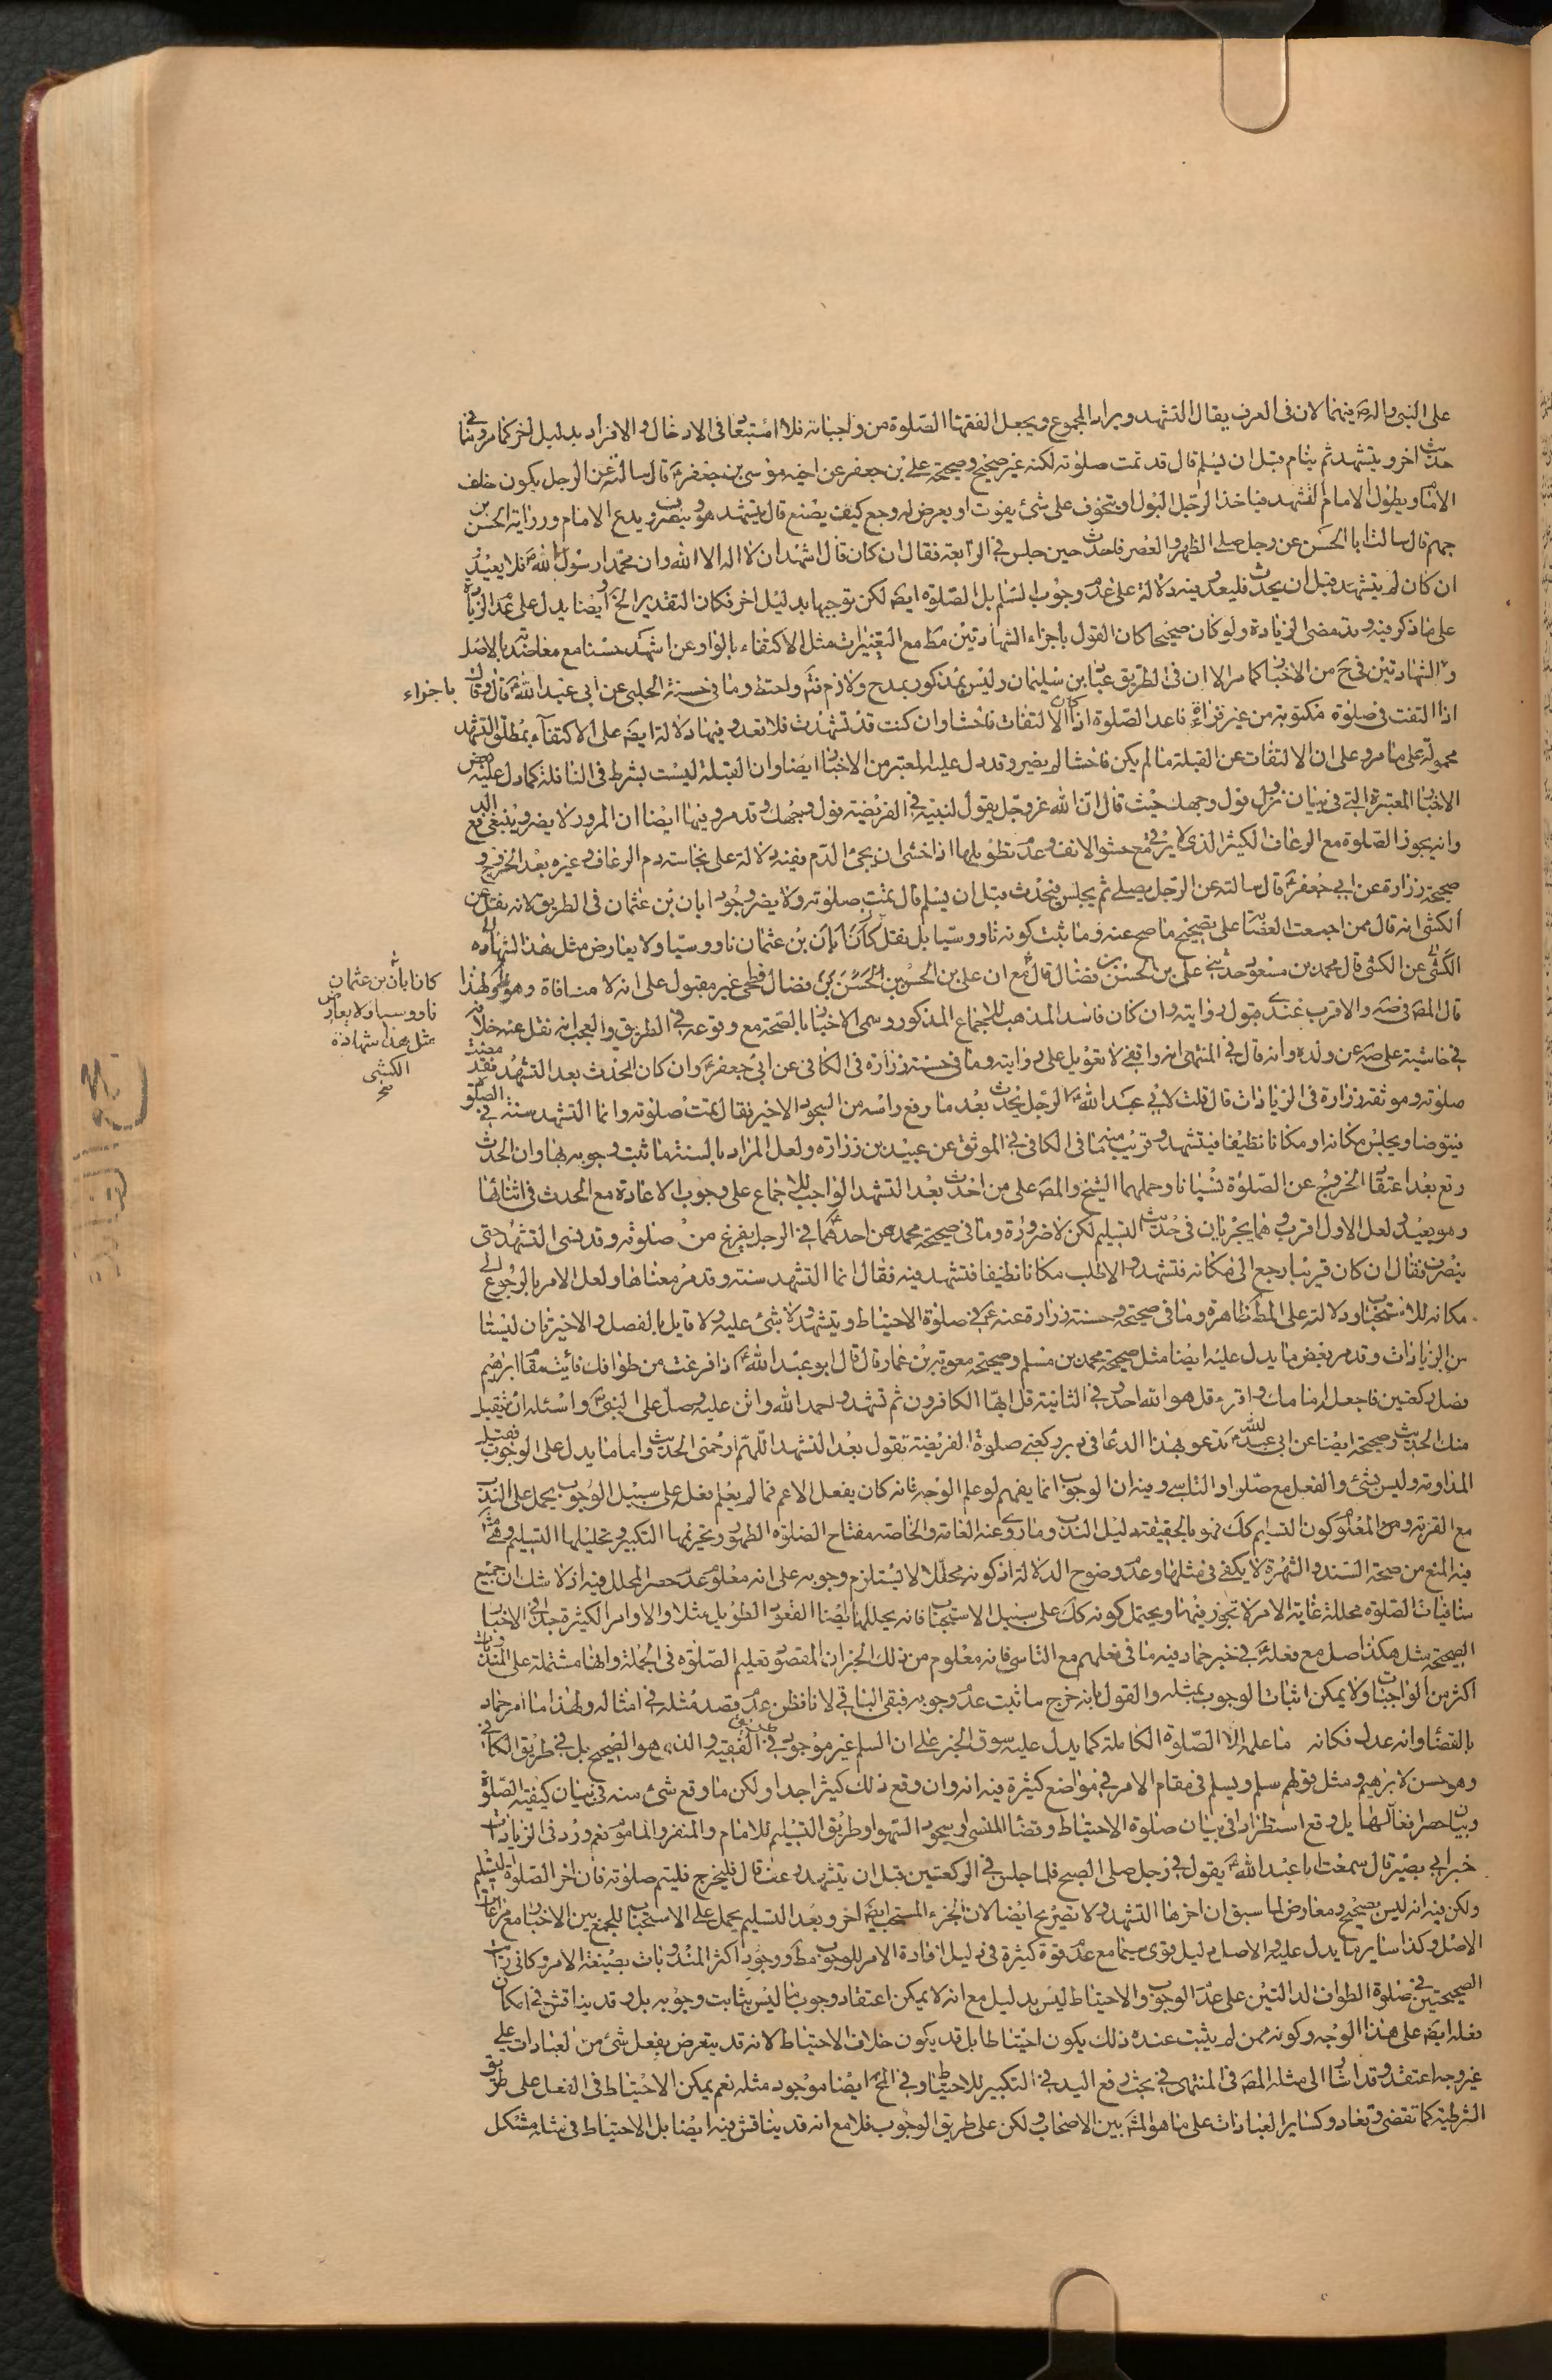 على النبي واله ص فيهما لان فى العرف يقال التشهد ويراد المجموع ويجعل الفقهاء الصلوة من واجباته فلا استبعاد فى الادخال والافراد بدليل اخر كما مر وفي
حديث اخر ويتشهد ثم ينام قبل ان يسلم قال قد تمت صلوته لكنه غير صحيح وصحيحة على بن جعفر عن اخيه موسى بن جعفر ع قال سالته عن الرجل يكون خلف
الامام ويطول الامام التشهد فياخذ الرجل البول او يتخوف على شئ يفوت او يعرض له وجع كيف يصنع قال يتشهد هو وينصرف ويدع الامام ورواية الحسن بن
جهم قال سالت ابا الحسن عن رجل صلى الظهر والعصر فاحدث حين جلس في الرابعة فقال ان كان قال اشهد ان لا اله الا الله وان محمدا رسول الله ص فلا يعيد
ان كان لم يتشهد قبل ان يحدث فليعد وفيه دلالة على عدم وجوب التسليم بل الصلوة ايض لكن توجيها بدليل اخر فكان التقدير الخ وايضا يدل على عدم الزيادة
على ما ذكر فيه وقد مضى الزيادة ولو كان صحيحا كان القول باجزاء الشهادتين مط مع التغييرات مثل الاكتفاء بالواو عن اشهد حسنا مع معاضدته بالاصل
والشهادتين في ح من الاخبار كما مر الا ان فى الطريق عباد بن سليمان وليس بمذكور بمدح ولا ذم فتم واحتط وما فى حسنة الحلبى عن ابى عبد الله ع قال وقال
باجزاء
اذا التفت فى صلوة مكتوبة من غير فراغ فاعد الصلوة اذا كان الالتفات فاحشا وان كنت قد تشهدت فلا تعد وفيها دلالة ايض على الاكتفاء بمطلق التشهد
محمولة على ما مر وعلى ان الالتفات عن القبلة ما لم يكن فاحشا لم يضر وقد دل عليه المعتبر من الاخبار ايضا وان القبلة ليست بشرط فى النافلة كما دل عليه بعض
الاخبار المعتبرة التي في بيان نزول فول وجهك حيث قال ان الله عز وجل يقول لنبيه في الفريضة فول وجهك وقد مر وفيها ايضا ان المرور لا يضر وينبغي الدفع
وانه يجوز الصلوة مع الرعاف الكثير الذى لا يرقى مع حشو الانف وعدم تطويلها اذا خشى ان يجئ الدم ففيه دلالة على نجاسة دم الرعاف وغيره بعد الخروج و
صحيحة زرارة عن ابي جعفر ع قال سالته عن الرجل يصلي ثم يجلس فيحدث قبل ان يسلم قال تمت صلوته ولا يضر وجود ابان بن عثمان فى الطريق لانه نقل عن
الكشى انه قال ممن اجمعت العصابة على تصحيح ما صح عنه وما ثبت كونه ناووسيا بل نقل كان ابان بن عثمان ناووسيا ولا يعارض مثل هذا الشهادة
الكشى عن الكشى قال محمد بن مسعود حدثني على بن الحسن بن فضال قال مع ان على بن الحسن بن الحسن بن فضال فطحى غير مقبول على انه لا منافاة وهو ولهذا
قال المص فى صه والاقرب عندي قبول روايته وان كان فاسد المذهب للاجماع المذكور وسمى الاخبار بالصحة مع وقوعه في الطريق والعجب انه نقل عنه خلافه
في حاشية على صه عن ولده وانه قال في المنتهى انه واقفي لا تعويل على روايته وما فى حسنة زرارة فى الكافى عن ابى جعفر ع وان كان الحدث بعد التشهد فقد مضت
صلوته وموثقة زرارة فى الزيادات قال قلت لابي عبد الله ع الرجل يحدث بعد ما رفع راسه من السجود الاخير فقال تمت صلوته وانما التشهد سنة في الصلوة
فيتوضا ويجلس مكانه او مكانا نظيفا فيتشهد وقريب منه ما فى الكافى في الموثق عن عبيد بن زرارة ولعل المراد بالسنة ما ثبت وجوبه بها وان الحدث
وقع بعد اعتقاد الخروج عن الصلوة نسيانا وحملهما الشيخ والمص على من احدث بعد التشهد الواجب للاجماع على وجوب الاعادة مع الحدث فى اثنائها
وهو بعيد ولعل الاول اقرب وهما يجريان فى حديث التسليم لكن لا ضرورة وما فى صحيحة محمد عن احدهما ع في الرجل يفرغ من صلوته وقد نسى التشهد حتى
ينصرف فقال ان كان قريبا رجع الى مكانه فتشهد والا طلب مكانا نظيفا فتشهد فيه فقال انما التشهد سنة وقد مر معناها ولعل الامر بالرجوع الى
مكانه للاستحباب ودلالته على المط ظاهرة وما فى صحيحة وحسنة زرارة عنه ع في صلوة الاحتياط ويتشهد ولا شئ عليه ولا قايل بالفصل والاخيرتان ليستا
من الزيادات وقد مر بعض ما يدل عليه ايضا مثل صحيحة محمد بن مسلم وصحيحة معوية بن عمار قال قال ابو عبد الله ع اذا فرغت من طوافك فائت مقام ابرهيم
فصل ركعتين فاجعل امامك واقرء قل هو الله احد وفي الثانية قل ايها الكافرون ثم تشهد واحمد الله واثن عليه وصل على النبى ص واسئله ان يتقبل
منك الحديث وصحيحة ايضا عن ابي عبد الله ع تدعو بهذا الدعا في دبر ركعتي صلوة الفريضة تقول بعد التشهد اللهم ارحمنى الحديث واما ما يدل على الوجوب فقيل
المداومة وليس بشئ والفعل مع صلوا والتاسي وفيه ان الوجوب انما يفهم لو علم الوجه فانه كان يفعل الاعم فما لم يعلم فعله على سبيل الوجوب يحمل على الندب
مع القربة ومن المعلوم كون التسليم كك فهو بالحقيقة دليل الندب وما روى عنه العامة والخاصة مفتاح الصلوة الطهور وتحريمها التكبير وتحليلها التسليم وهي
فيه المنع من صحة السند والشهرة لا يكفى في مثلها وعدم وضوح الدلالة اذ كونه محللا لا يستلزم وجوبه على انه معلوم عدم حصر المحلل فيه اذ لا شك ان جميع
منافيات الصلوة محللة غاية الامر لا تجوز فيها ويحتمل كونه كك على سبيل الاستحباب فانه يحللها ايضا القعود الطويل مثلا والاوامر الكثيرة جدا في الاخبار
الصحيحة مثل هكذا صل مع فعله ع في خبر حماد فيه ما فى فعلهم مع التاسى فانه معلوم من ذلك الخبر ان المقصود تعليم الصلوة فى الجملة وانها مشتملة على المندوبات
اكثر من الواجبات ولا يمكن اثبات الوجوب بمثله والقول بانه خرج ما ثبت عدم وجوبه فبقى الباقي لا نا نظن عدم قصد مثله في امثاله ولهذا ما امر حماد
بالقضاء وانه عدل فكانه ما علمه الا الصلوة الكاملة كما يدل عليه سوق الخبر على ان السلم غير موجود في الفقيه والذي هو الصحيح بل في طريق الكافي
وهو حسن لابرهيم ومثل قولهم سلم ويسلم فى مقام الامر في مواضع كثيرة فيه انه وان وقع ذلك كثيرا جدا ولكن ما وقع شئ منه في بيان كيفية الصلوة
وبيان حصر افعالها بل وقع استطرادا فى بيان صلوة الاحتياط وقضاء المنسى او سجود السهو او طريق التسليم للامام والمنفرد والماموم نعم ورد فى الزيادات
خبر ابي بصير قال سمعت ابا عبد الله ع يقول في رجل صلى الصبح فلما جلس في الركعتين قبل ان يتشهد رعف قال فليخرج فليتم صلوته فان اخر الصلوة التسليم
ولكن فيه انه ليس بصحيح ومعارض لما سبق ان اخرها التشهد ولا تصريح ايضا لان الجزء المستحب ايض اخر وبعد التسليم يحمل على الاستحباب للجمع بين الاخبار مع مراعاة
الاصل وكذا ساير ما يدل عليه والاصل دليل قوى سيما مع عدم قوة كثيرة فى دليل افادة الامر للوجوب مط ووجود اكثر المندوبات بصيغة الامر وكانى رايت
الصحيحتين في صلوة الطواف الدالتين على عدم الوجوب والاحتياط ليس بدليل مع انه لا يمكن اعتقاد وجوب ما ليس بثابت وجوبه بل وقد يناقش في امكان
فعله ايض على هذا الوجه وكونه ممن لم يثبت عنده ذلك يكون احتياطا بل قد يكون خلاف الاحتياط لانه قد يتعرض بفعل شئ من العبادات على
غير وجه اعتقد وقد اشار الى مثله المص فى المنتهى في بحث رفع اليد في التكبير للاحتياط وفي الحج ايضا موجود مثله نعم يمكن الاحتياط فى الفعل على طريق
الشرطية كما تقضى وتعاد وكساير العبادات على ما هو المشهَ بين الاصحاب ولكن على طريق الوجوب فلا مع انه قد يناقش فيه ايضا بل الاحتياط فى مثله مشكل
كان ابان بن عثمان
ناووسيا ولا يعارض
مثل هذا شهادة
الكشى